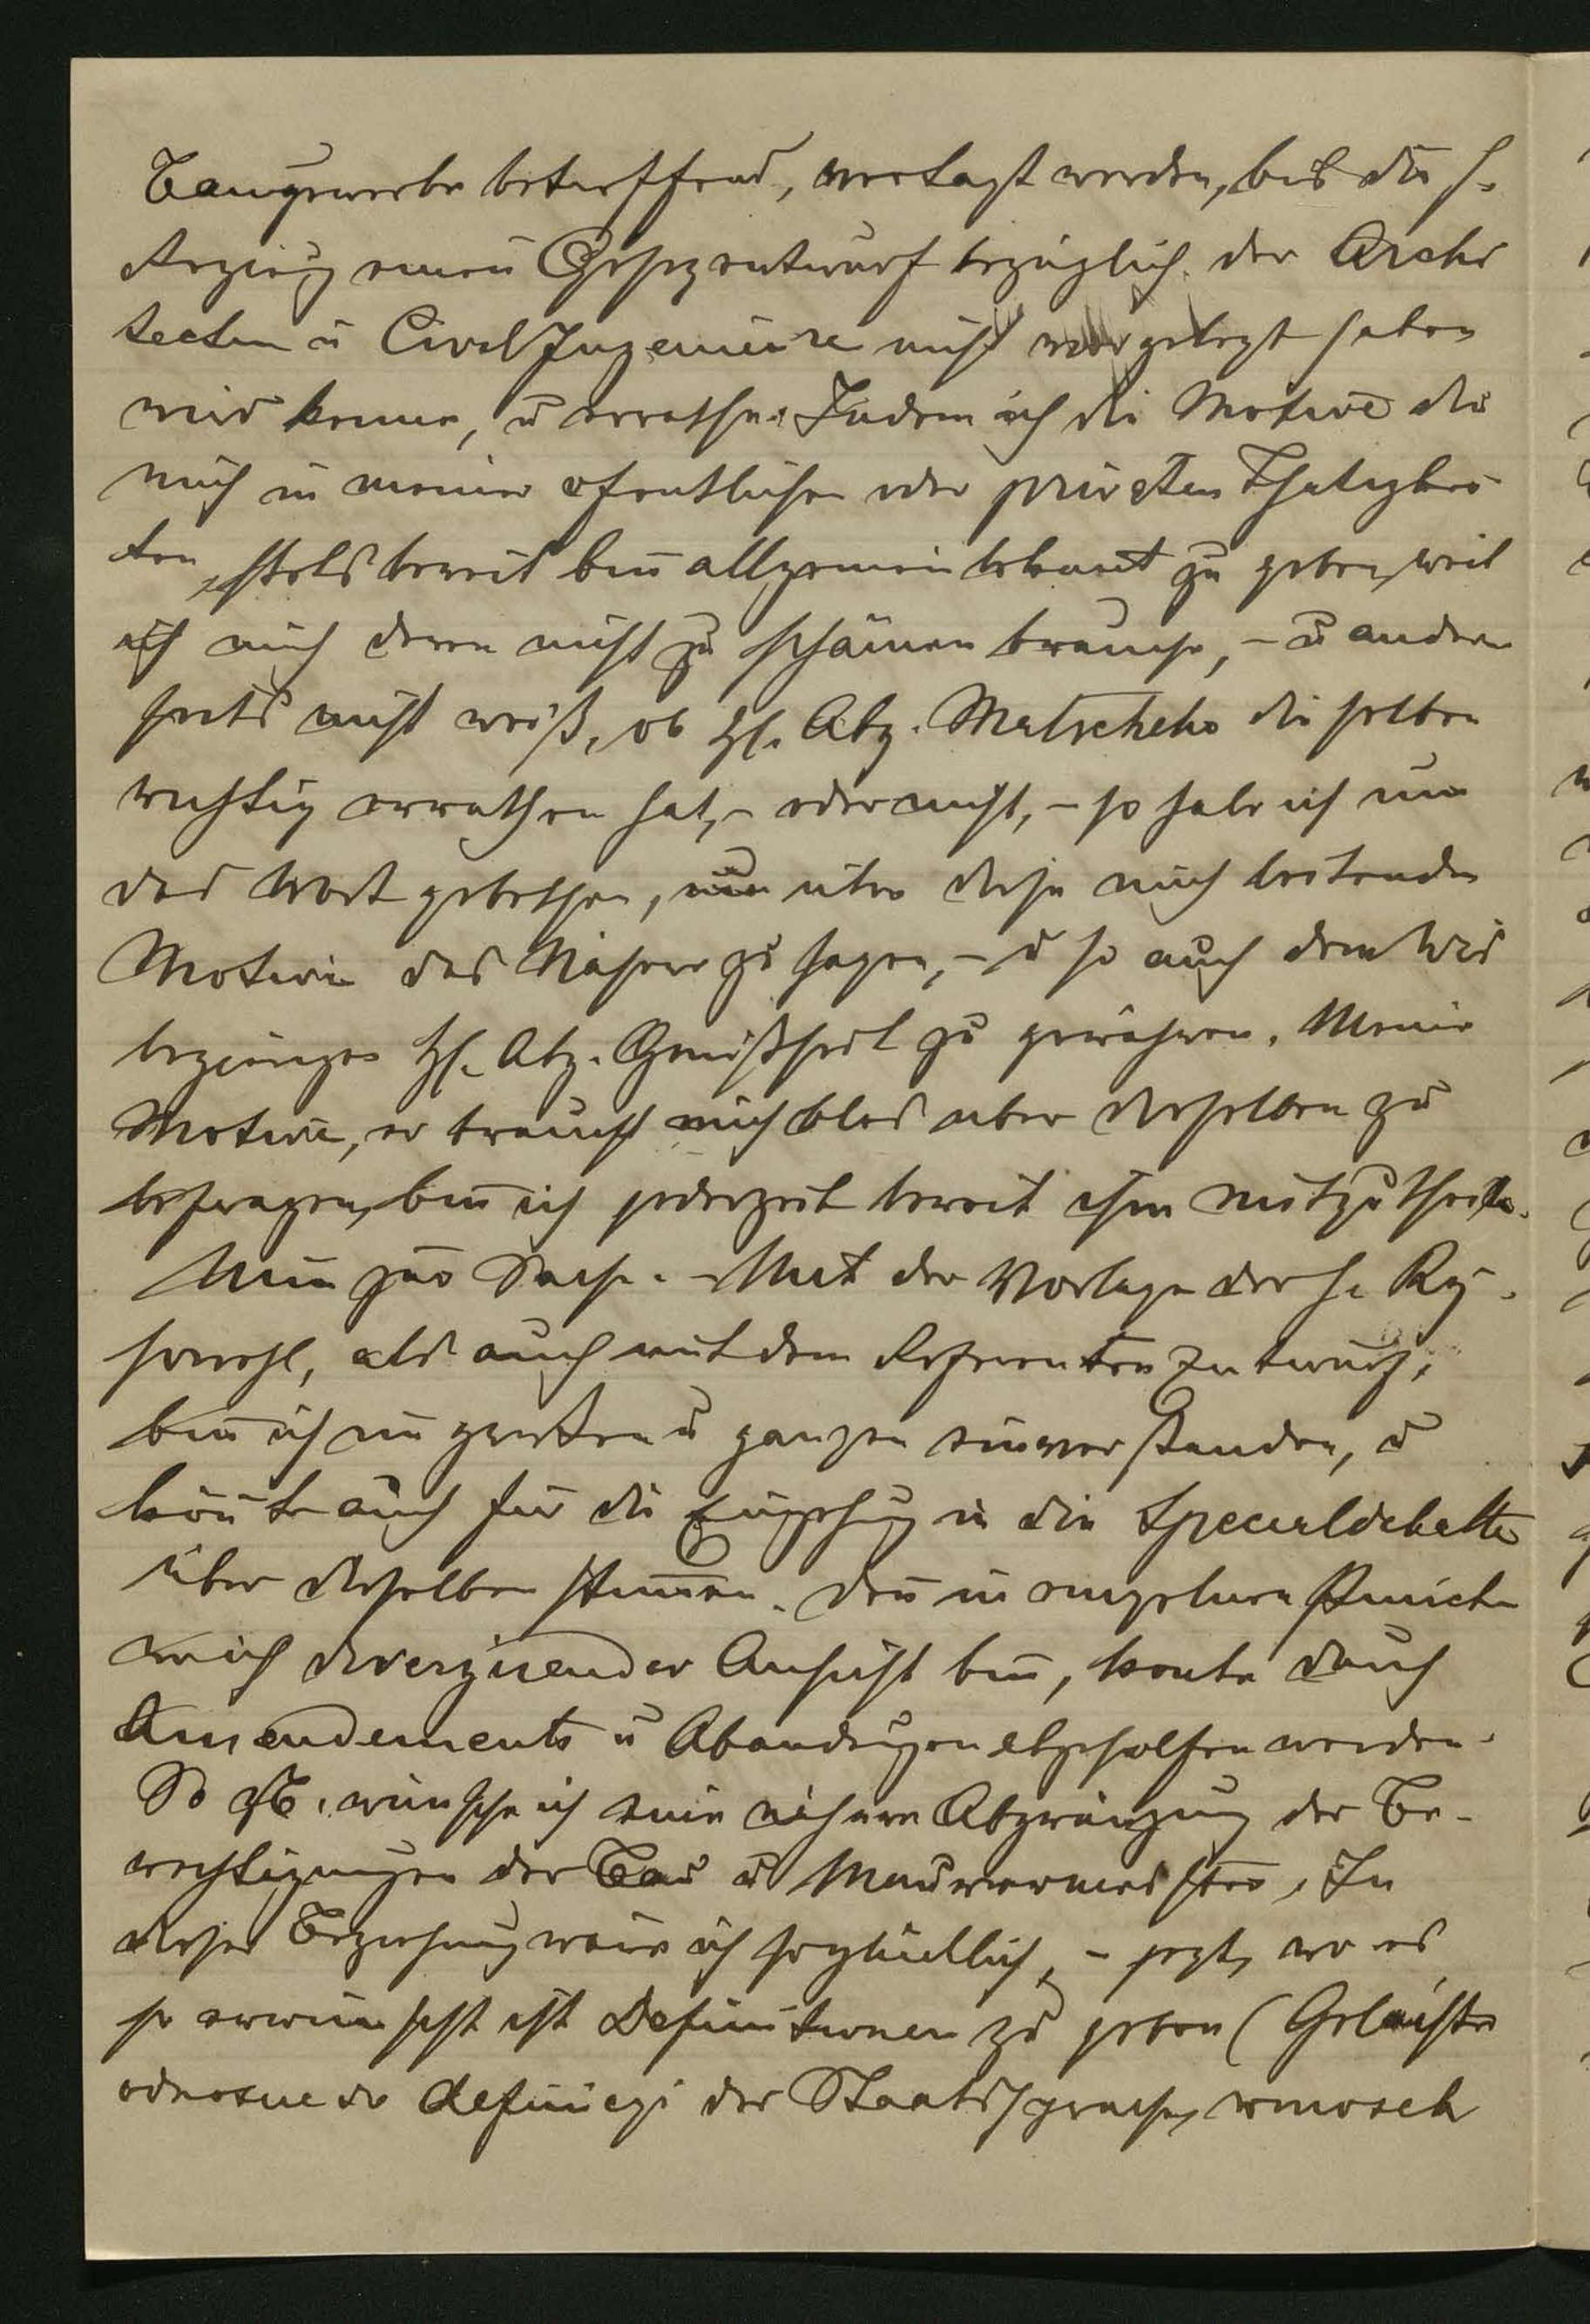 Baugewerbe betreffend, vertagt werden, bis die h.
Regierg einen Gesetzentwurf bezüglich der Archi
tecten u Civil Ingenieure nicht vorgelegt haben
wird können, u errathen. Indem ich die Motive die
mich in meiner öfentlichen oder privaten Thätigkei
ten, stets bereit bin allgemein bekannt zu geben, weil
ich mich deren nicht zu schämen brauche, – u andrer
seits nicht weiß, ob H. Abg. Matscheko dieselben
richtig errathen hat, – oder nicht, – so habe ich mir
das Wort gebethen, um über diese mich leitenden
Motive das Nähere zu sagen, – u so auch dem wiß
begierigen H. Abg. Gewißheit zu gewähren. Meine
Motive, er braucht mich blos über dieselben zu
befragen, bin ich jederzeit bereit ihm mitzutheilen.
Nun zur Sache. – Mit der Vorlage der h. Rg.
sowohl, als auch mit dem Referenten Entwurf,
bin ich im großen u ganzen einverstanden, u
könnte auch für die Eingehung in die Specialdebatte
über dieselben stimmen. Den in einzelnen Puncten
wo ich divergirender Ansicht bin, konte durch
Amendements u Abänderungen abgeholfen werden.
So zB. wünsche ich eine nähere Abgränzung der Be-
rechtigungen der Bau u Maurermeister, In
dieser Beziehung wäre ich so glücklich, – jezt, wo es
so erwünscht ist Definitionen zu geben (Gelächter
odnosne do definicyi der Staatssprache, wniosek